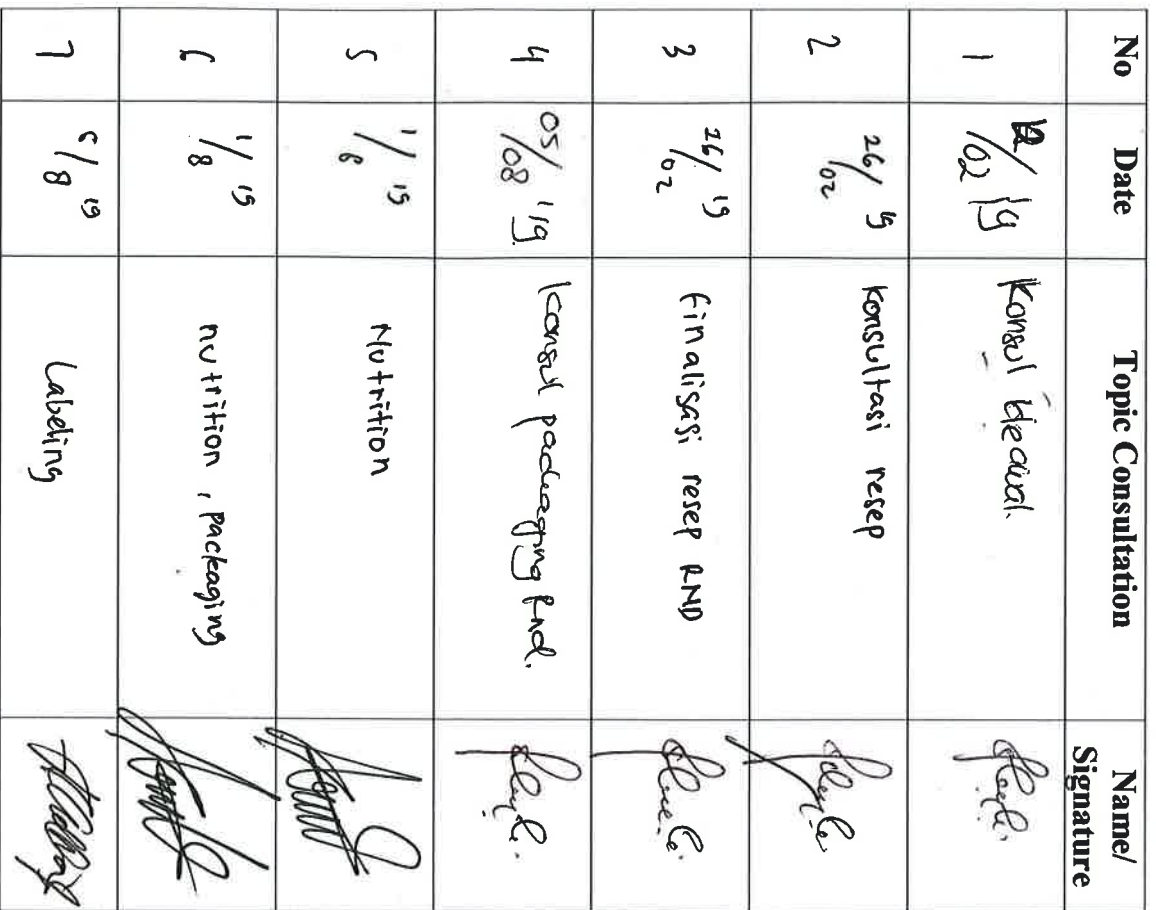 No Date Topic Consultation Name/ Signature
1 /02 19 Konsul
2 26/02 19 Konsultasi resep
3 26/02 19 finalisasi resep RND
4 05/08 '19 Konsul packaging Rnd.
5 1/8 19 Nutrition
6 1/8 19 nutrition, packaging
7 5/8 19 Labeling